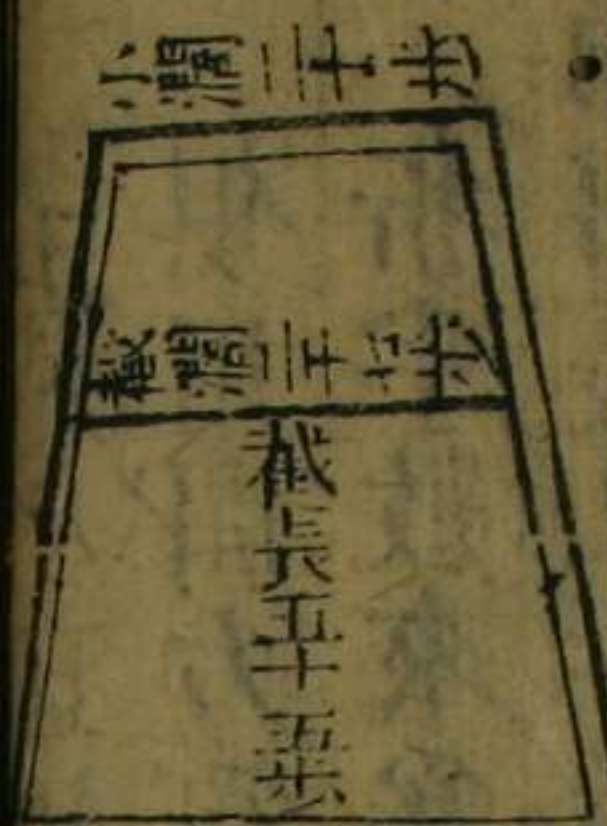 小濶二十步
截濶二十六步
截長五十五步